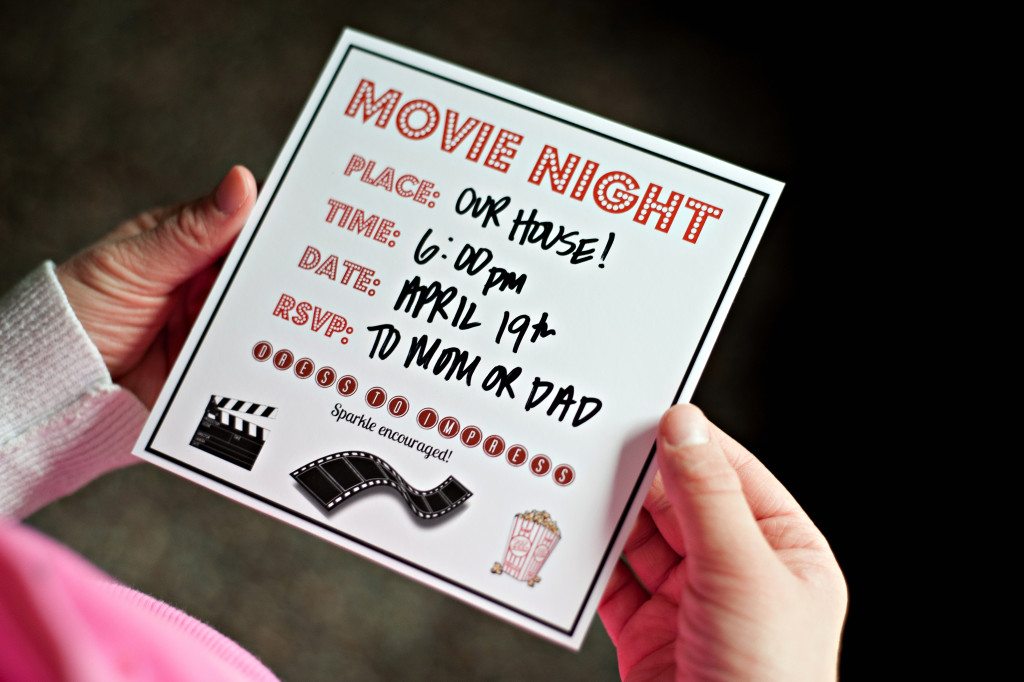 MOVIE NIGHT
PLACE: OUR HOUSE!
TIME: 6:00pm
DATE: APRIL 19th
RSVP: TO MOM OR DAD
DRESS TO IMPRESS
Sparkle encouraged!